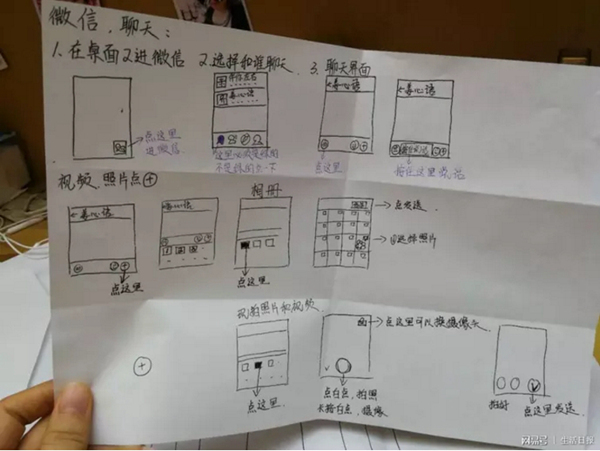 微信，聊天：
1.在桌面上进微信 2.选择和谁聊天 3.聊天界面
点这里
进微信
←姜心语
←姜心语
点这里
按住这里说话
视频 照片点⊕
相册
←姜心语
姜心语
点这里
点这里
→点发送
→①选择照片
现拍照片和视频
点这里
→点这里可以换摄像头
点白点，拍照
长按白点，摄像
拍好
点这里发送
搜狐号@生活日报